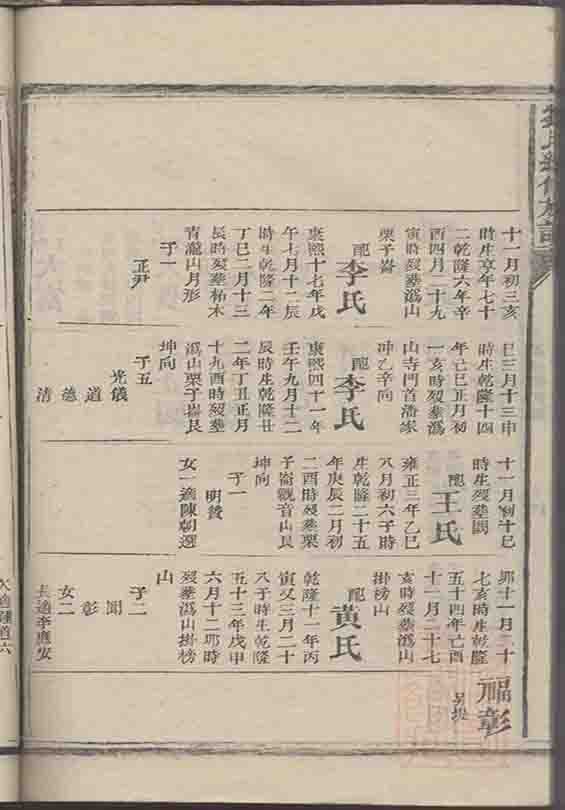 十一月初三亥
時生享年七十
二乾隆六年辛
酉四月二十九
寅時歿葬溈山
栗子崙
配
李氏
康熙十七年戊
午七月十二辰
時生乾隆二年
丁巳二月十三
辰時歿葬柘木
青瀧山月形
子一
正尹
巳三月十三申
時生乾隆十四
年己巳正月初
一亥時歿葬溈
山寺門首潘家
冲乙辛向
配
李氏
康熙四十一年
壬午九月十二
辰時生乾隆廿
二年丁丑正月
十九酉時歿葬
溈山栗子崙艮
坤向
子五
光儀
道
德
清
十一月初十巳
時生歿葬闕
配
王氏
雍正三年乙巳
八月初六子時
生乾隆二十五
年庚辰二月初
二酉時歿葬栗
子崙觀音山艮
坤向
子一
明贊
女一適陳朝選
卯十一月二十
七亥時生乾隆
五十四年己酉
十一月二十七
亥時歿葬溈山
掛榜山
配
黃氏
乾隆十一年丙
寅又三月二十
八子時生乾隆
五十三年戊申
六月十二卯時
歿葬溈山掛榜
山
子二
聞
彰
女二
長適李應安
福彰
另提